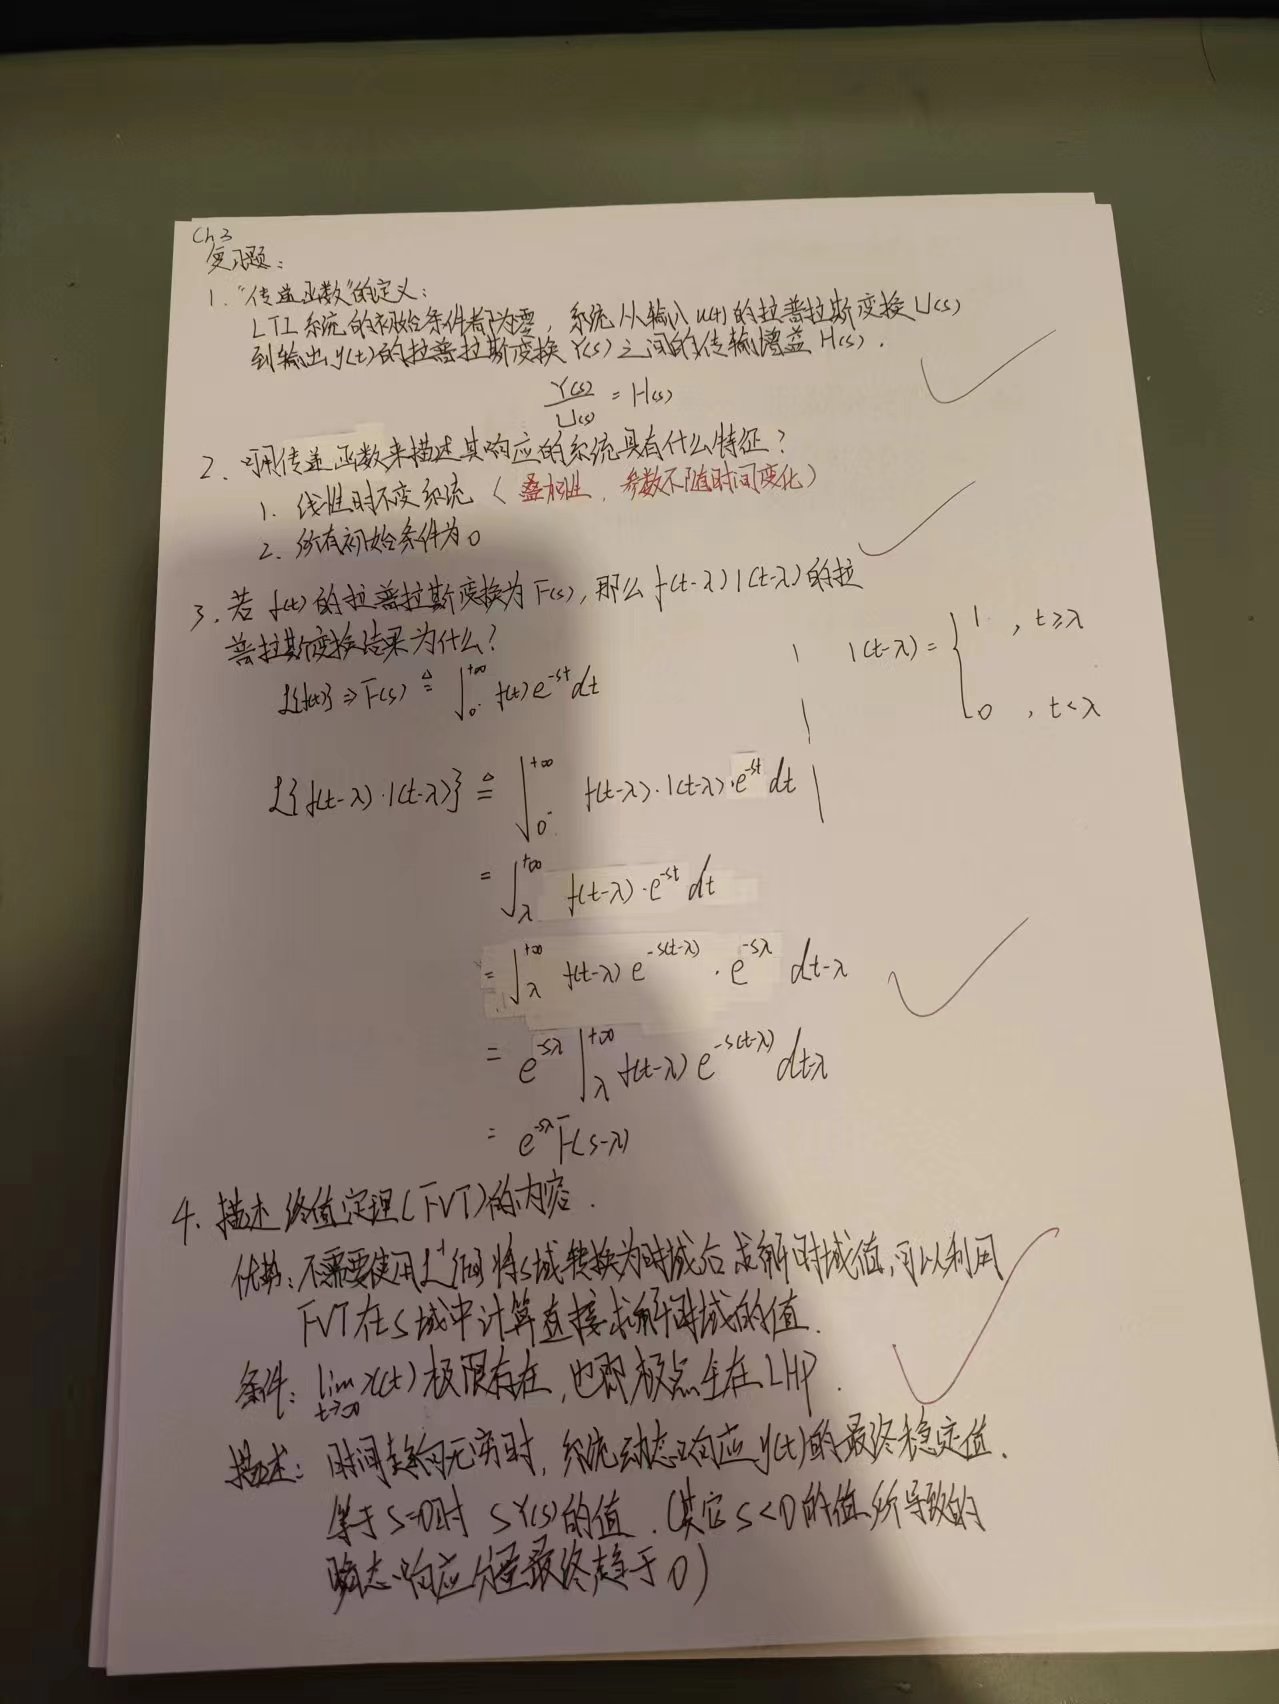 Ch3
复习题：
1. "传递函数"的定义：
LTI系统的初始条件都为零，系统从输入u(t)的拉普拉斯变换U(s)
到输出y(t)的拉普拉斯变换Y(s)之间的传输增益H(s).
Y(s)/U(s) = H(s)
2. 可用传递函数来描述其响应的系统具有什么特征？
1. 线性时不变系统（叠加性，参数不随时间变化）
2. 所有初始条件为0
3. 若f(t)的拉普拉斯变换为F(s)，那么f(t-λ)1(t-λ)的拉
普拉斯变换结果为什么？
1(t-λ) = { 1, t≥λ
0, t<λ
L{f(t)} ⇒ F(s) ≜ ∫_{0^-}^{+∞} f(t)e^{-st}dt
L{f(t-λ)·1(t-λ)} ≜ ∫_{0^-}^{+∞} f(t-λ)·1(t-λ)·e^{-st}dt
= ∫_λ^{+∞} f(t-λ)·e^{-st}dt
= ∫_λ^{+∞} f(t-λ)e^{-s(t-λ)}·e^{-sλ} dt-λ
= e^{-sλ} ∫_λ^{+∞} f(t-λ)e^{-s(t-λ)}dt-λ
= e^{-sλ}F(s-λ)
4. 描述终值定理(FVT)的内容.
优势：不需要使用L^{-1}将s域转换为时域后求解时域值，可以利用
FVT在s域中计算直接求解时域的值.
条件：lim_{t→∞} x(t)极限存在，也即极点全在LHP.
描述：时间趋向无穷时，系统动态响应y(t)的最终稳定值.
等于s=0时 sY(s)的值.（其它s<0的值所导致的
瞬态响应分量最终趋于0）